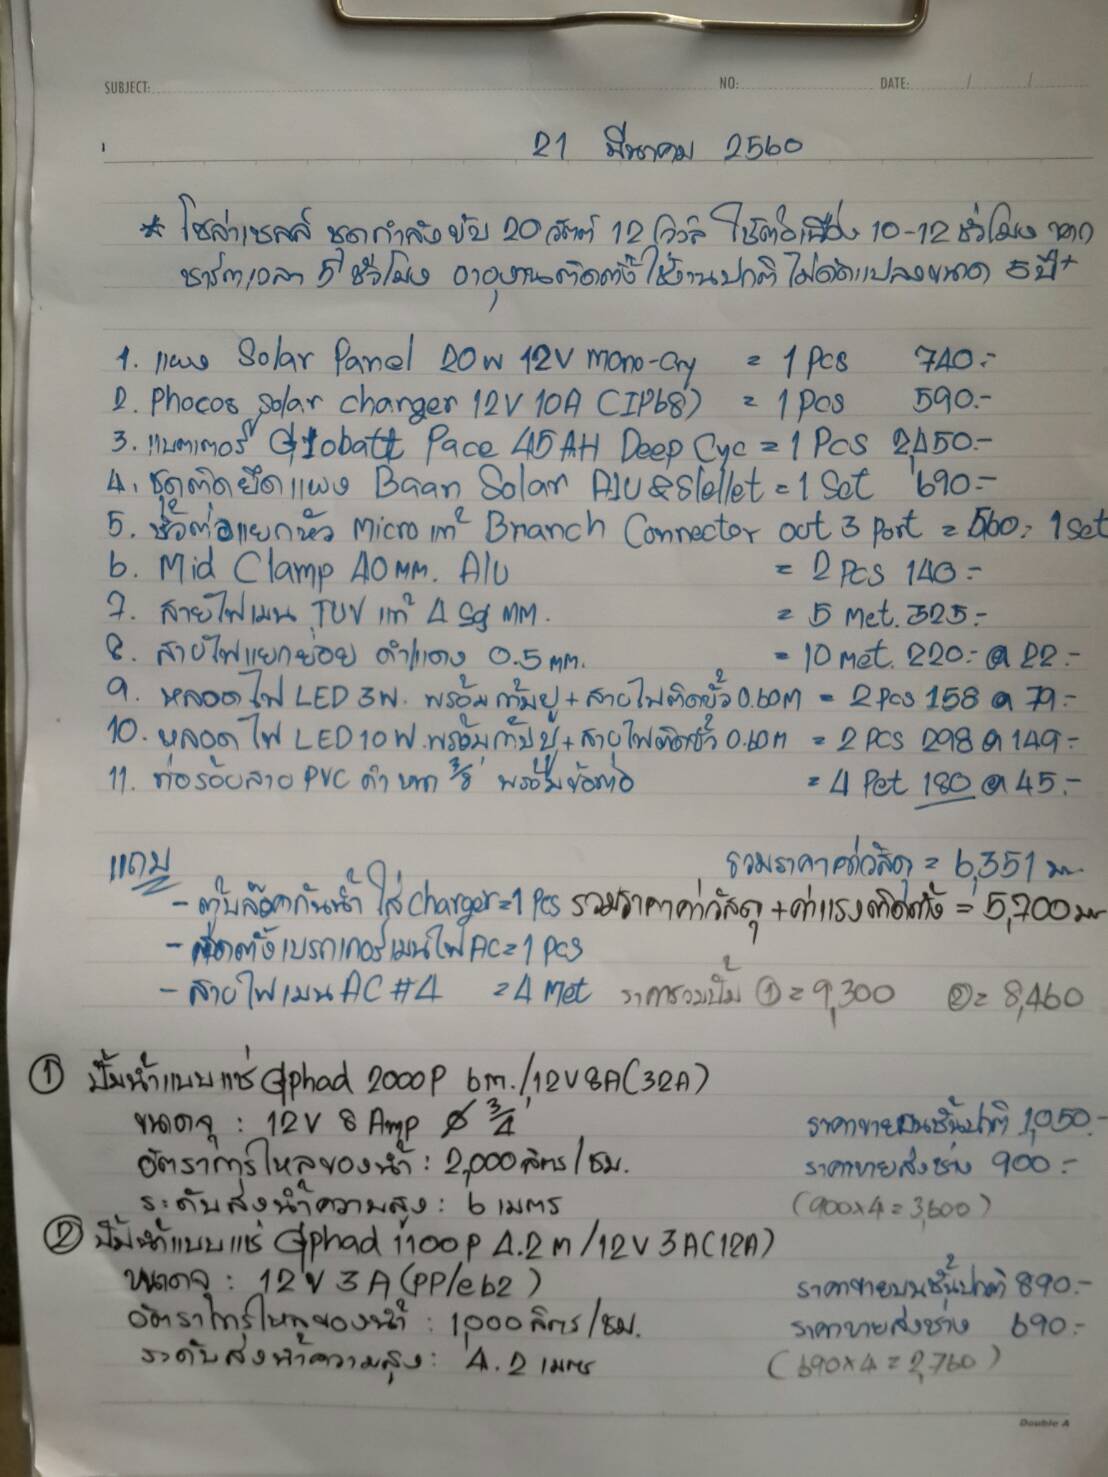 SUBJECT: NO: DATE: / /
21 มีนาคม 2560
* โซล่าเซลล์ ชุดกำลังขับ 20 วัตต์ 12 โวลล์ ใช้ต่อเนื่อง 10-12 ชั่วโมง หาก
ชาร์ตเวลา 5 ชั่วโมง อายุงานติดตั้งใช้งานปกติ ไม่ดัดแปลงขนาด 5 ปี+
1. แผง Solar Panel 20W 12V mono-cry = 1 Pcs 740.-
2. Phocos Solar charger 12V 10A (IP68) = 1 Pcs 590.-
3. แบตเตอรี่ Globatt Pace 45 AH Deep Cyc = 1 Pcs 2,450.-
4. ชุดติดยึดแผง Baan Solar Alu & = 1 Set 690.-
5. ขั้วต่อแยกหัว Micro แท้ Branch Connector out 3 port = 560.- 1 set
6. Mid Clamp 40 MM. Alu = 2 Pcs 140.-
7. สายไฟเมน TUV แท้ 4 Sq MM. = 5 Met. 325.-
8. สายไฟแยกย่อย ดำ/แดง 0.5 mm. = 10 met. 220.- @ 22.-
9. หลอดไฟ LED 3W. พร้อมกิ๊บปู + สายไฟติดขั้ว 0.60M = 2 pcs 158 @ 79.-
10. หลอดไฟ LED 10W. พร้อมกิ๊ปปู + สายไฟติดขั้ว 0.60M = 2 PCS 298 @ 149.-
11. ท่อร้อยสาย PVC ดำ หนา 3/8" พร้อมข้อต่อ = 4 Pet 180 @ 45.-
แถม รวมราคาค่าวัสดุ = 6,351
- ตู้บล๊อคกันน้ำ ใส่ charger = 1 Pcs รวมราคาค่าวัสดุ + ค่าแรงติดตั้ง = 5,700
- ติดตั้งเบรกเกอร์เมนไฟ AC = 1 pcs
- สายไฟเมน AC #4 = 4 Met ราคารวมปั้ม ① = 9,300 ② = 8,460
① ปั้มน้ำแบบแช่ Gphad 2000P 6m./12V 8A (32A)
ขนาดจุ : 12V 8 Amp ∅ 3/4" ราคาขายบนชั้นปกติ 1,050.-
อัตราการไหลของน้ำ : 2,000 ลิตร/ชม. ราคาขายส่งช่าง 900.-
ระดับส่งน้ำความสูง : 6 เมตร (900x4 = 3,600)
② ปั้มน้ำแบบแช่ Gphad 1100P 4.2 m /12V 3A (12A)
ขนาดจุ : 12V 3A (PP/eb2) ราคาขายบนชั้นปกติ 890.-
อัตราการไหลของน้ำ : 1,000 ลิตร/ชม. ราคาขายส่งช่าง 690.-
ระดับส่งน้ำความสูง : 4.2 เมตร (690x4 = 2,760)
Double A